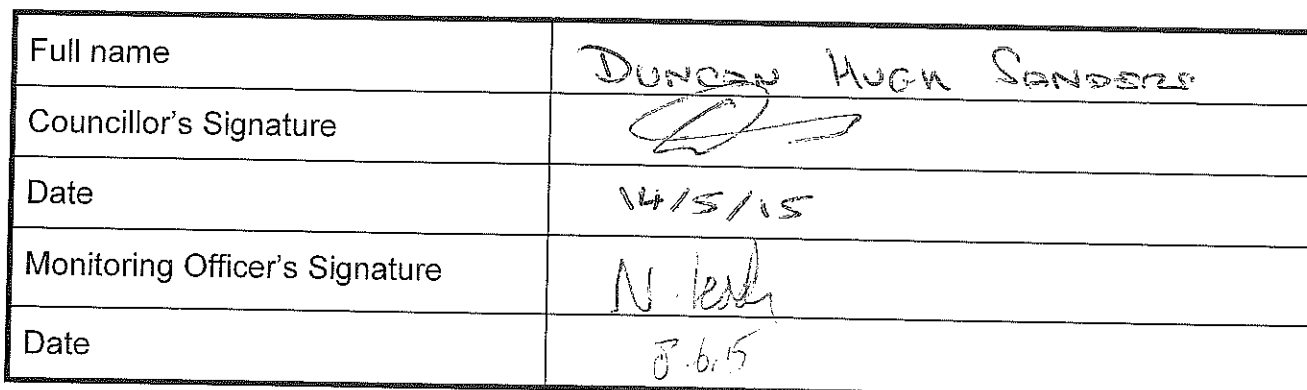 Full name DUNCAN HUGH SANDERS
Councillor's Signature
Date 14/5/15
Monitoring Officer's Signature N.
Date 8.6.15